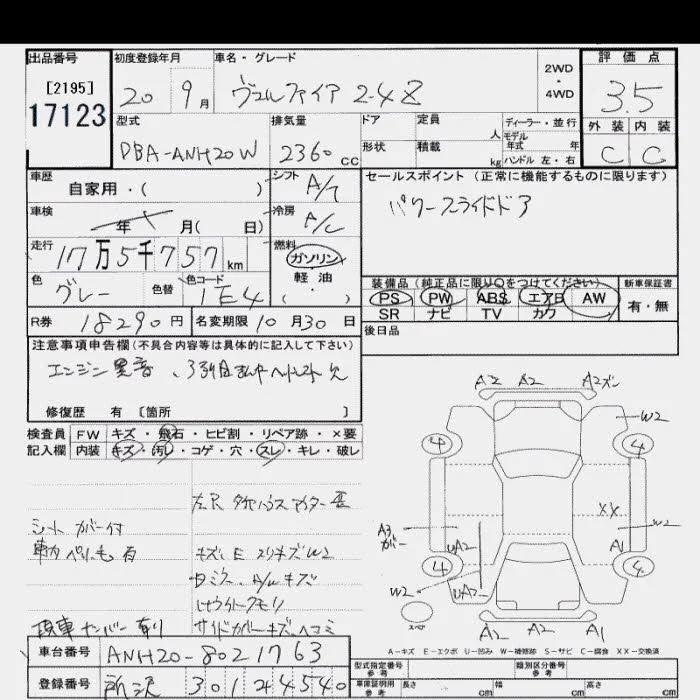 出品番号
[2195]
17123
初度登録年月
20 9月
車名・グレード
ヴェルファイア 2.4Z
2WD
・
4WD
評価点
3.5
外装 内装
C C
型式
DBA-ANH20W
排気量
2360 cc
ドア
形状
定員 人
積載 kg
ディーラー・並行
モデル
年式 年
ハンドル 左・右
車歴
自家用・( )
シフト
A/T
車検
年 月( 日)
冷房
A/C
走行
17万5千757 km
燃料
ガソリン
軽油
( )
色
グレー
色替
色コード
1E4
R券 18290円
名変期限 10月30日
セールスポイント (正常に機能するものに限ります)
パワースライドドア
装備品 (純正品に限り○をつけてください)
PS PW ABS エアB AW
SR ナビ TV カワ
新車保証書
有・無
後日品
注意事項申告欄 (不具合内容等は具体的に記入して下さい)
エンジン異音、3列目
欠
修復歴 有 〔箇所 〕
検査員 FW キズ・飛石・ヒビ割・リペア跡・×要
記入欄 内装 キズ・汚レ・コゲ・穴・スレ・キレ・破レ
左R タイヤハウス
シートカバー付
有
キズ E スリキズ W2
A/Wキズ
ナンバー有り
サイドカバーキズ、ヘコミ
車台番号 ANH20-8021763
登録番号 所沢 301 そ 4540
A2 A2 A2
W2
4 4
A3
カバー
UA2
XX
W2
A1
4 4
W2
UA2
スペア
A2 A2 A1
A-キズ E-エクボ U-凹み W-補修跡 S-サビ C-腐食 XX-交換済
型式指定番号
参考
類別区分番号
参考
車庫証明用
参考
長さ cm 幅 cm 高さ cm